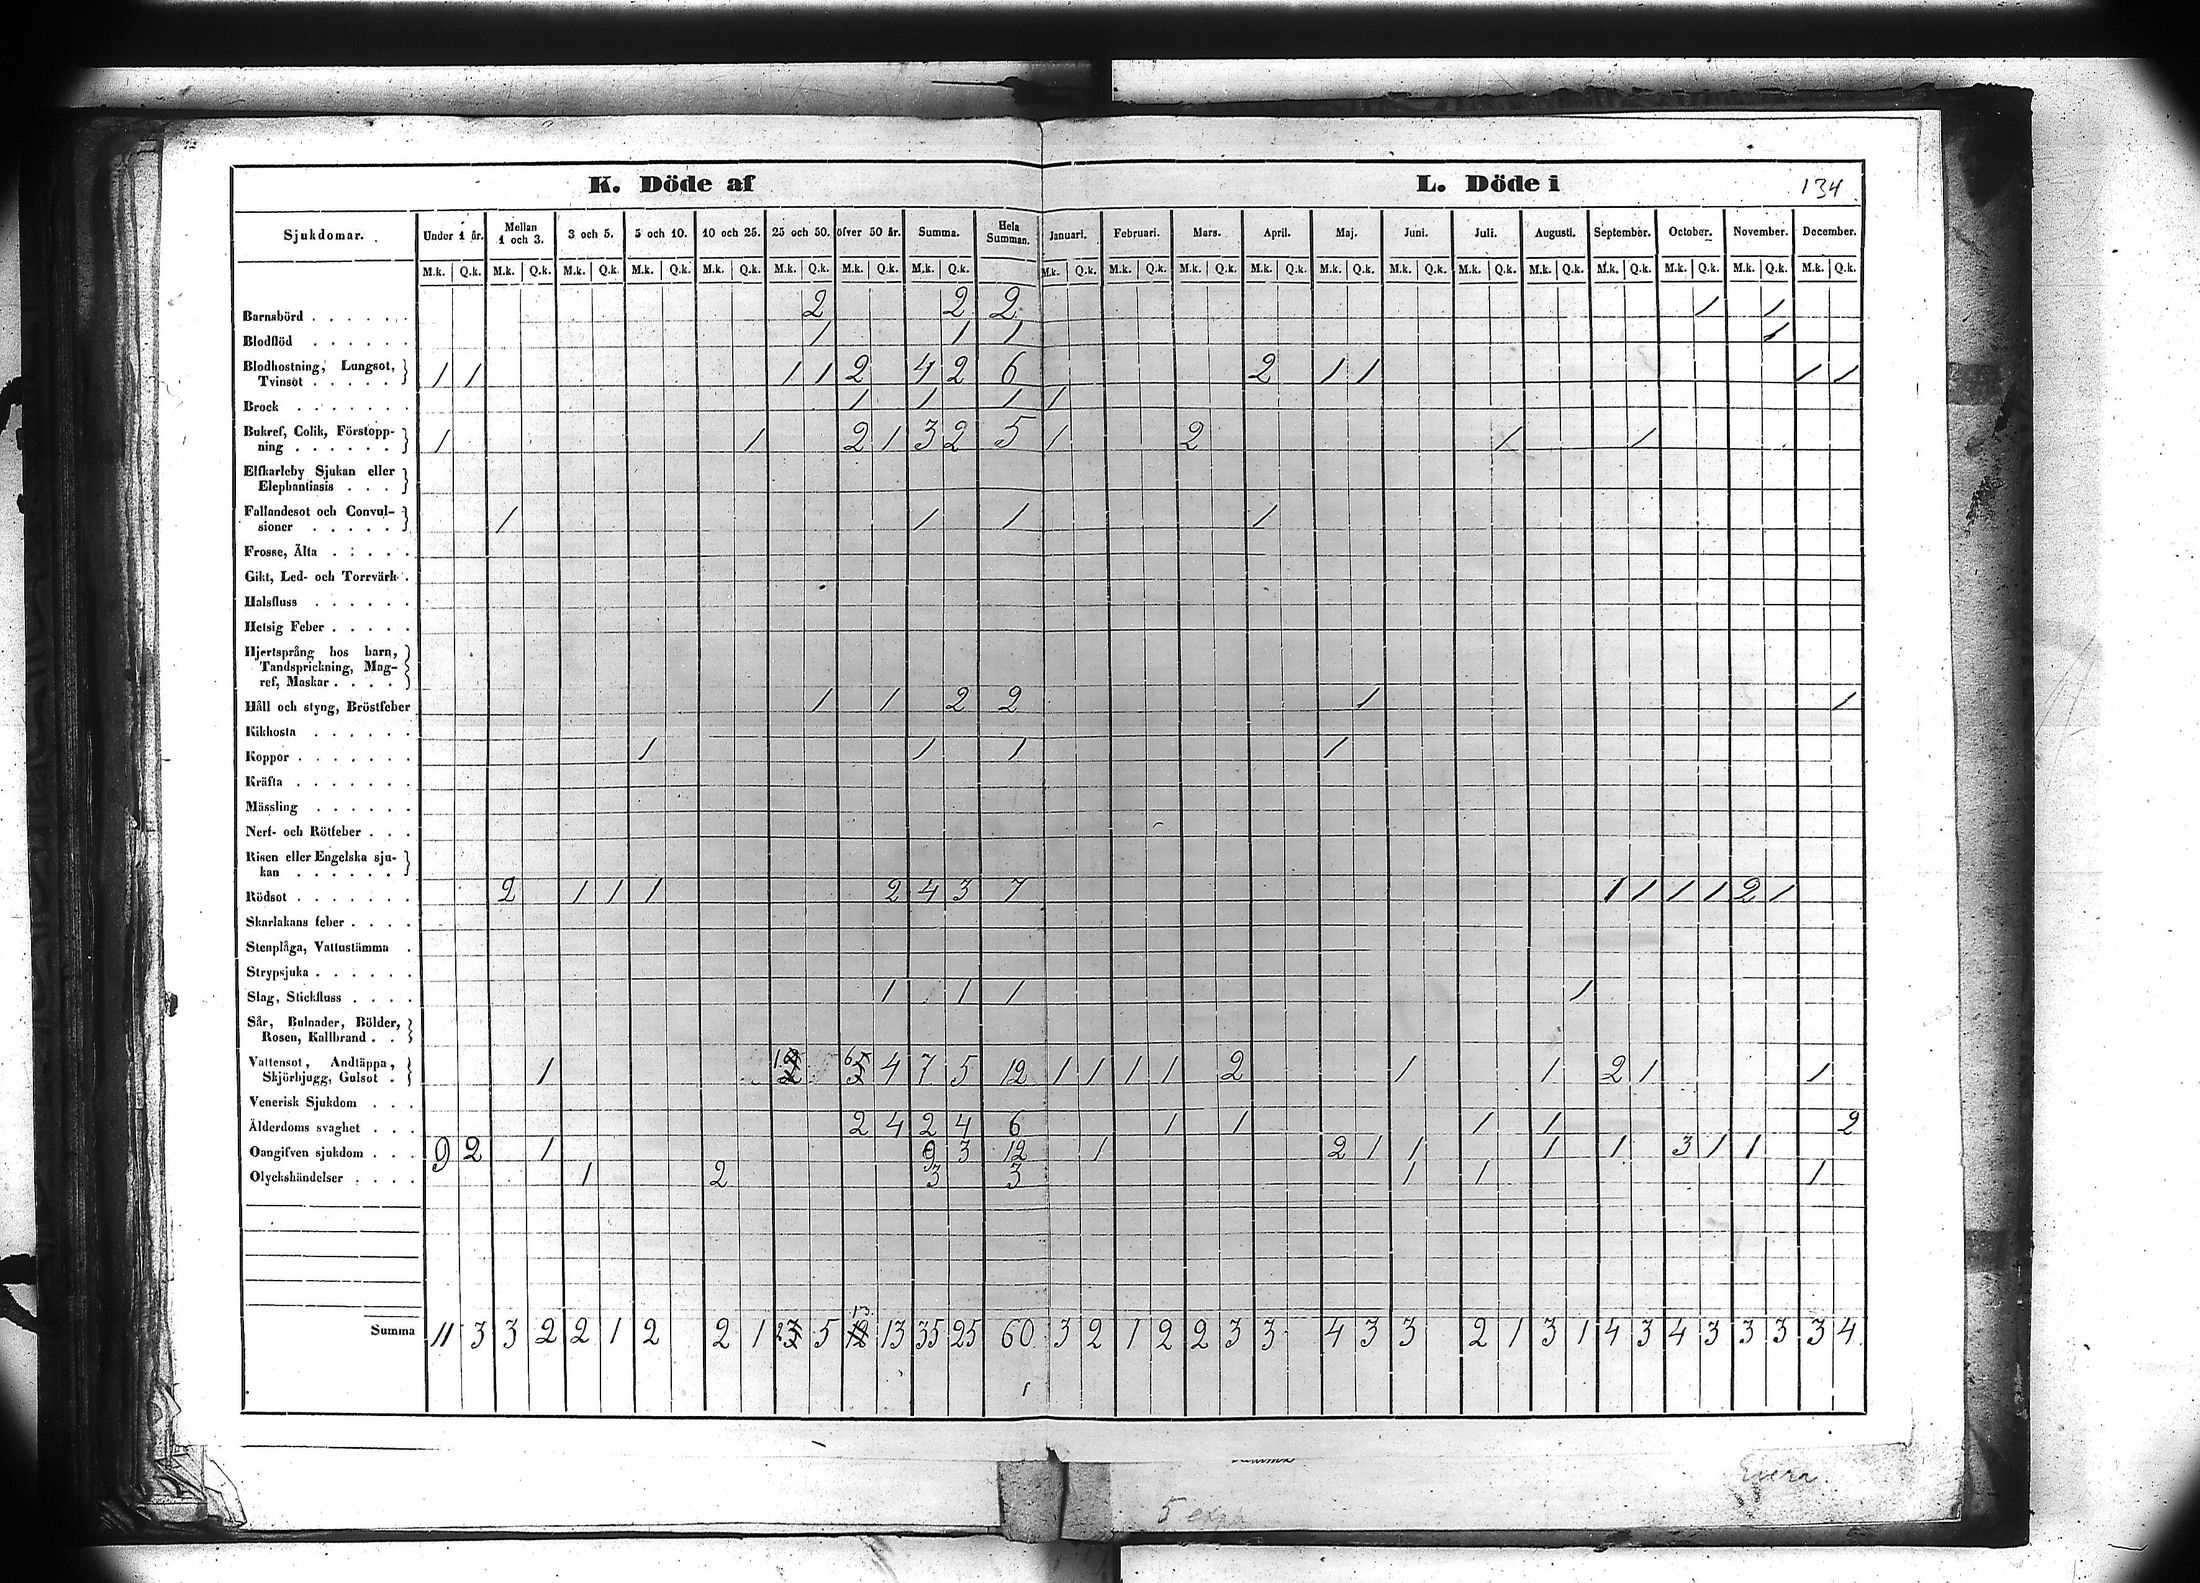 K. Döde af L. Döde i 134
Sjukdomar. Under 1 år. Mellan 1 och 3. 3 och 5. 5 och 10. 10 och 25. 25 och 50. öfver 50 år. Summa. Hela Summan. Januari. Februari. Mars. April. Maj. Juni. Juli. Augusti. September. October. November. December.
M.k. Q.k. M.k. Q.k. M.k. Q.k. M.k. Q.k. M.k. Q.k. M.k. Q.k. M.k. Q.k. M.k. Q.k. M.k. Q.k. M.k. Q.k. M.k. Q.k. M.k. Q.k. M.k. Q.k. M.k. Q.k. M.k. Q.k. M.k. Q.k. M.k. Q.k. M.k. Q.k. M.k. Q.k. M.k. Q.k.
Barnsbörd 2 2 2 1 1
Blodflöd 1 1 1 1
Blodhostning, Lungsot,
Tvinsot 1 1 1 1 2 4 2 6 2 1 1 1 1
Brock 1 1 1 1
Bukref, Colik, Förstopp-
ning 1 1 2 1 3 2 5 1 2 1 1
Elfkarleby Sjukan eller
Elephantiasis
Fallandesot och Convul-
sioner 1 1 1 1
Frosse, Älta
Gikt, Led- och Torrvärk
Halsfluss
Hetsig Feber
Hjertsprång hos barn,
Tandsprickning, Mag-
ref, Maskar
Håll och styng, Bröstfeber 1 1 2 2 1 1
Kikhosta
Koppor 1 1 1 1
Kräfta
Mässling
Nerf- och Rötfeber
Risen eller Engelska sju-
kan
Rödsot 2 1 1 1 2 4 3 7 1 1 1 1 2 1
Skarlakans feber
Stenplåga, Vattustämma
Strypsjuka
Slag, Stickfluss 1 1 1 1
Sår, Bulnader, Bölder,
Rosen, Kallbrand
Vattensot, Andtäppa,
Skjörbjugg, Gulsot 1 1 6 4 7 5 12 1 1 1 1 2 1 1 2 1 1
Venerisk Sjukdom
Ålderdoms svaghet 2 4 2 4 6 1 1 1 1 2
Oangifven sjukdom 9 2 1 9 3 12 1 2 1 1 1 1 3 1 1
Olyckshändelser 1 2 3 3 1 1 1
Summa 11 3 3 2 2 1 2 2 1 2 5 13 13 35 25 60 3 2 1 2 2 3 3 4 3 3 2 1 3 1 4 3 4 3 3 3 3 4
5 extra